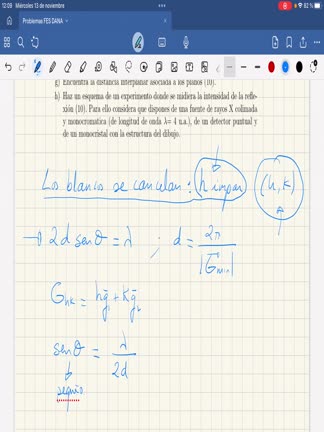 12:09 Miércoles 13 de noviembre
62 %
Problemas FES DANA
g) Encuentra la distancia interplanar asociada a los planos (10).
h) Haz un esquema de un experimento donde se midiera la intensidad de la refle-
xión (10). Para ello considera que dispones de una fuente de rayos X colimada
y monocromática (de longitud de onda λ= 4 u.a.), de un detector puntual y
de un monocristal con la estructura del dibujo.
Los blancos se cancelan: h impar (h, k)
→ 2d senθ = λ ; d = 2π / |G min|
G hk = h g̅₁ + k g̅₂
senθ = λ / 2d